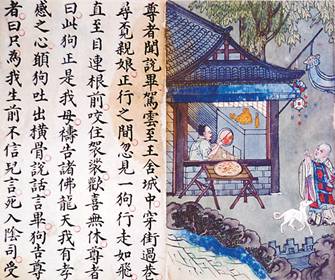 尊者聞說畢駕雲至王舍城中穿街過巷
尋覓親娘正行之間忽見一狗行走如飛
直至目連根前咬住袈裟歡喜無休尊者
曰此狗正是我母禱告諸佛龍天我有孝
感之心願狗吐出橫骨說話言畢狗告尊
者曰只爲我生前不信兒言死入陰司受